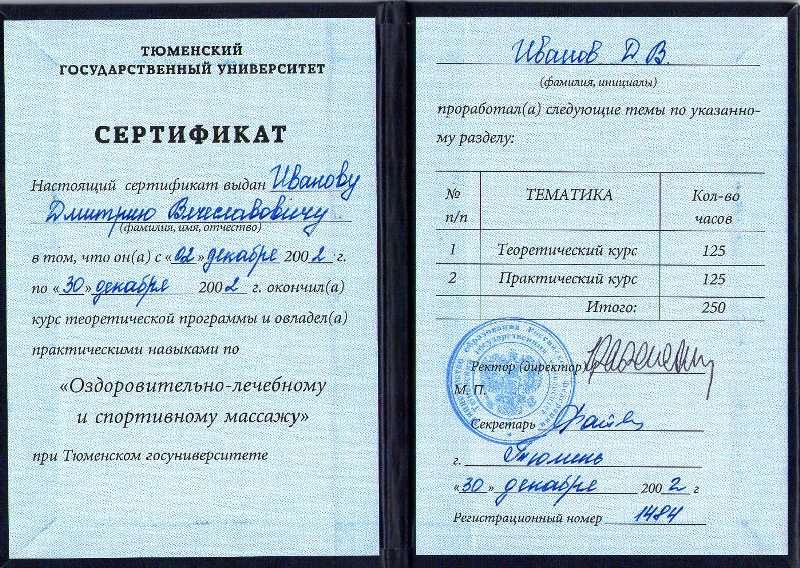 ТЮМЕНСКИЙ
ГОСУДАРСТВЕННЫЙ УНИВЕРСИТЕТ
СЕРТИФИКАТ
Настоящий сертификат выдан Иванову
Дмитрию Вячеславовичу
(фамилия, имя, отчество)
в том, что он(а) с «02» декабря 2002 г.
по «30» декабря 2002 г. окончил(а)
курс теоретической программы и овладел(а)
практическими навыками по
«Оздоровительно-лечебному
и спортивному массажу»
при Тюменском госуниверситете
Иванов Д.В.
(фамилия, инициалы)
проработал(а) следующие темы по указанно-
му разделу:
№ п/п ТЕМАТИКА Кол-во часов
1 Теоретический курс 125
2 Практический курс 125
Итого: 250
Ректор (директор)
М. П.
Секретарь
г. Тюмень
«30» декабря 2002 г
Регистрационный номер 1484